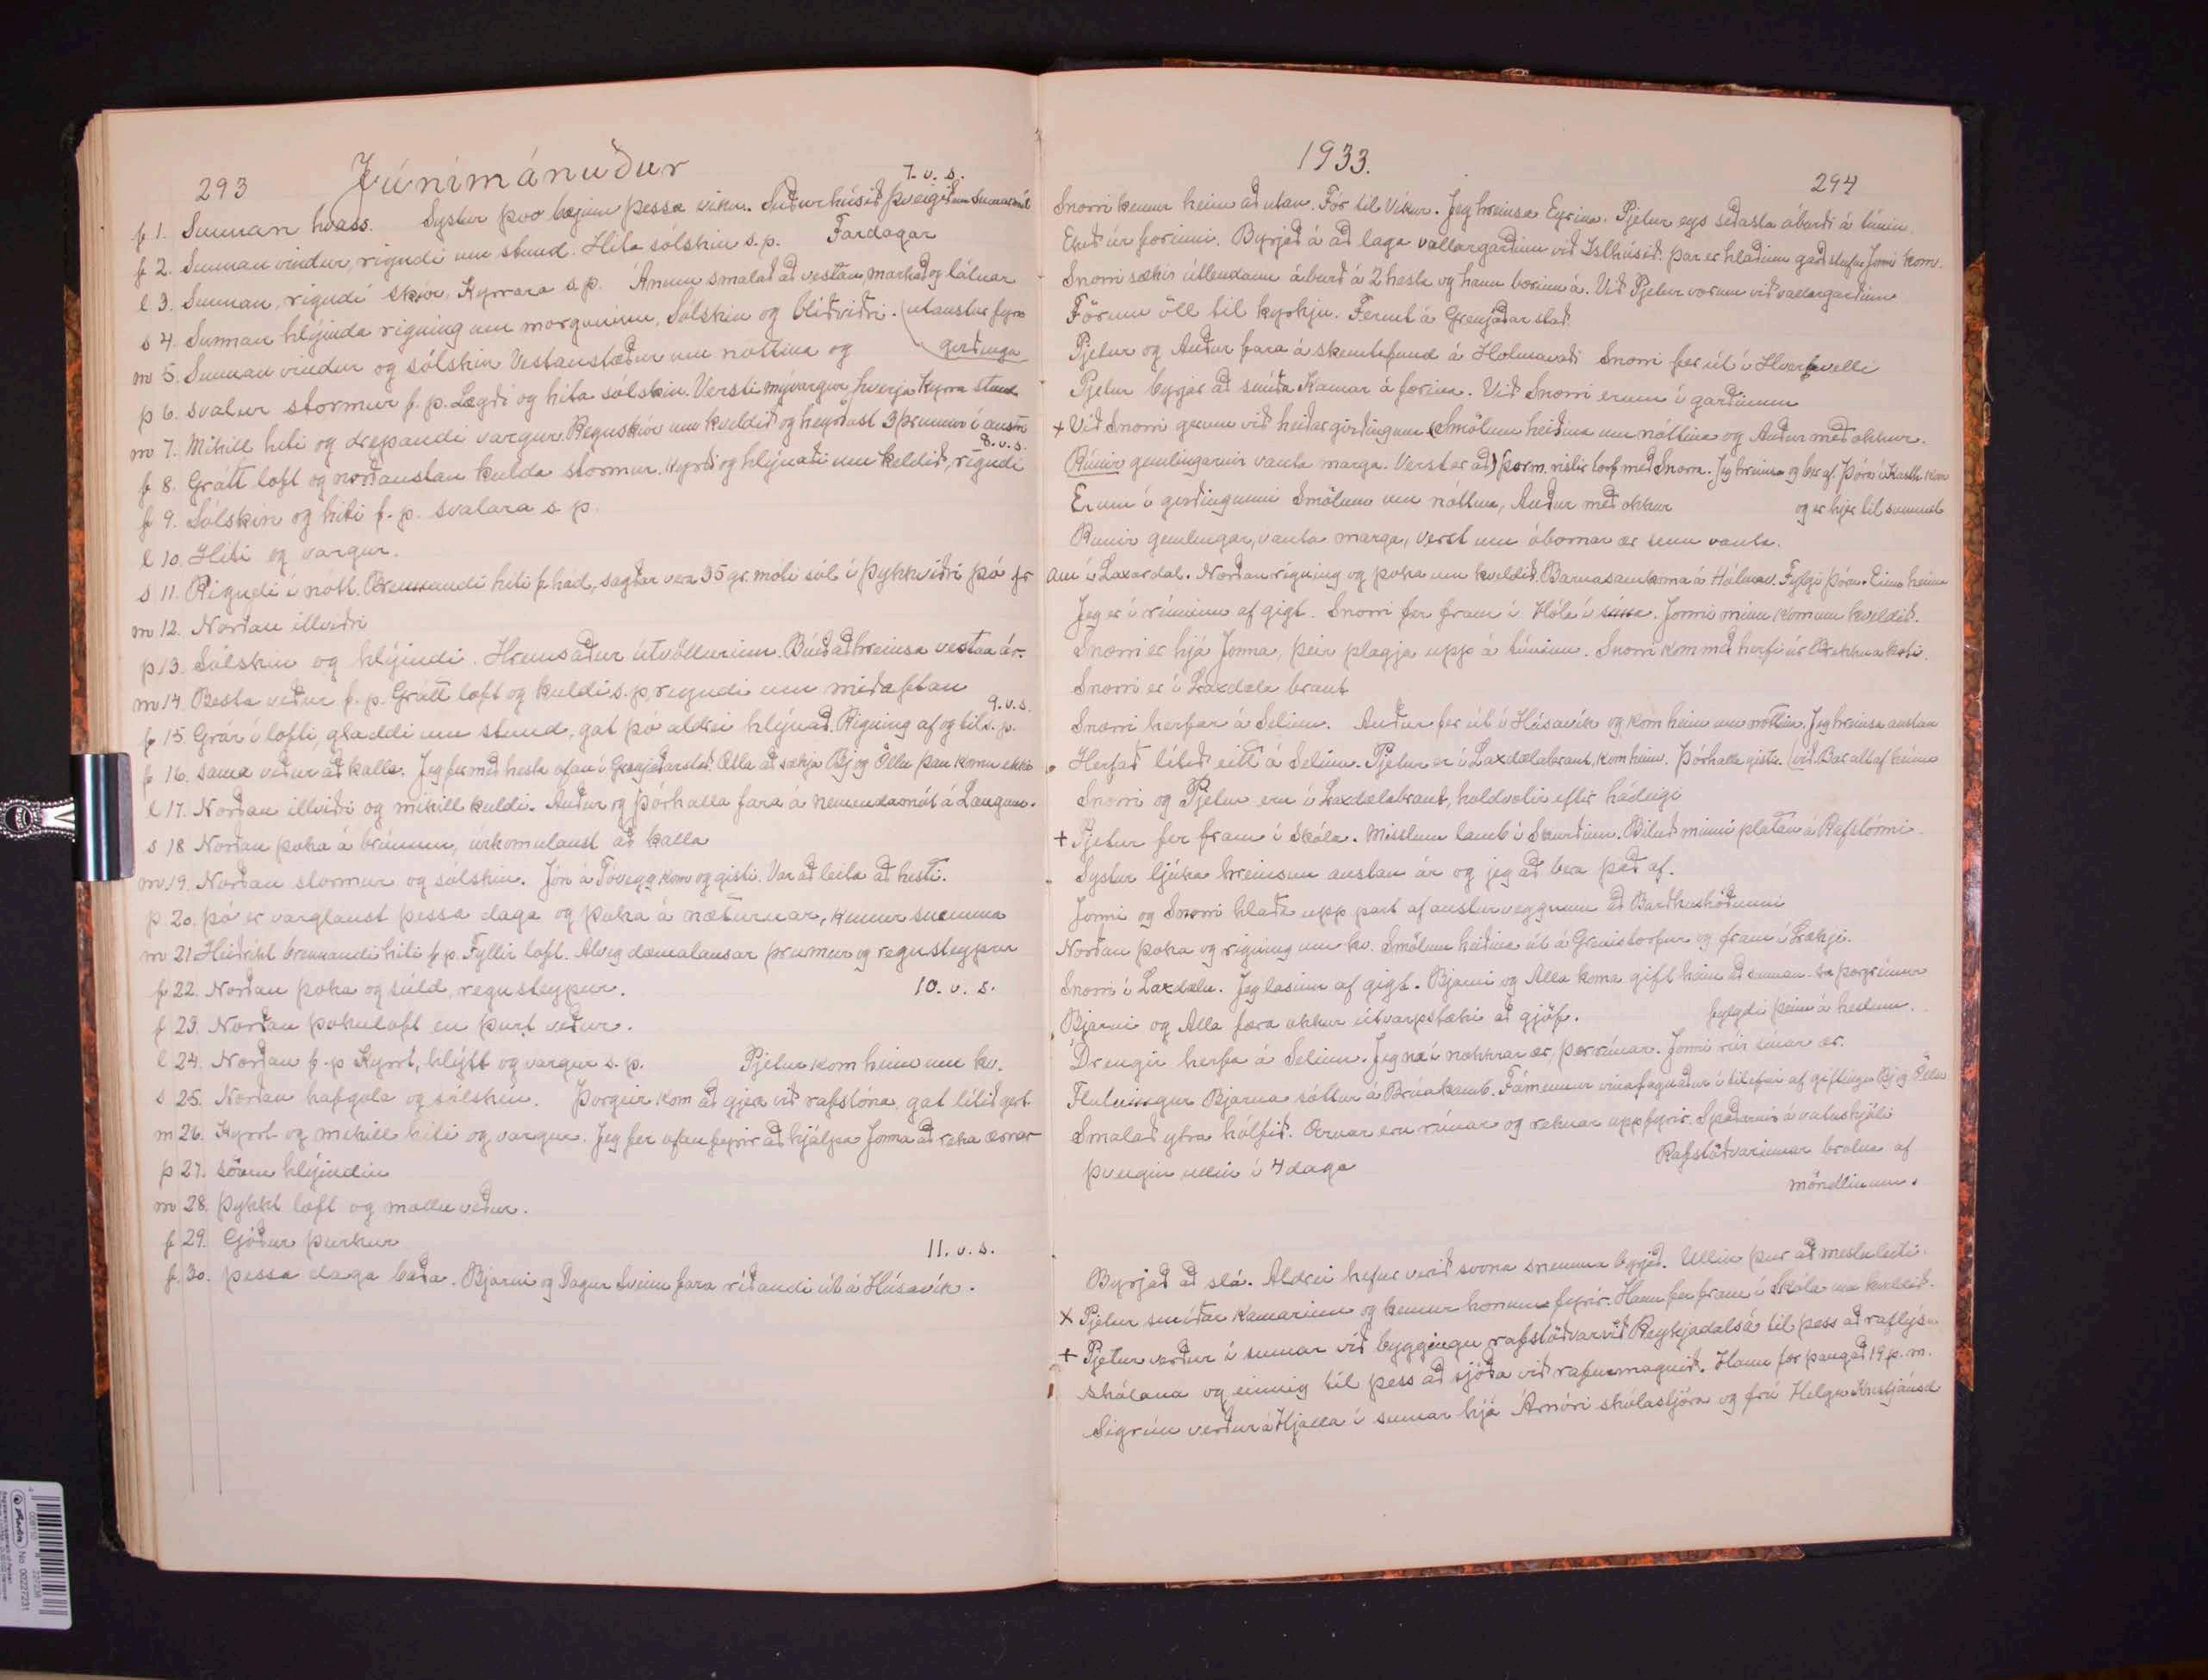 293 Júnímánuður
7. v. s.
f 1. Sunnan hvass. Systur þvo bæinn þessa viku. Suðurhúsið þvegið um sumarmál
f 2. Sunnan vindur, rigndi um stund. Hita sólskin s.p. Fardagar
l 3. Sunnan, rigndi skúr. Kyrrara s.p. Ánum smalað að vestan, markað og látnar
s 4. Sunnan hlýinda rigning um morguninn, Sólskin og blíðviðri. (utanstur fyrir
girðinga
m 5. Sunnan vindur og sólskin Vestanstæður um nóttina og
þ 6. svalur stormur f.p. Lægði og hita sólskin. Versti mývargur hverja kyrra stund
m 7. Mikill hiti og drepandi vargur. Regnskúr um kveldið og heyrðust 3 þrumur í austri
8. v. s.
f 8. Grátt loft og norðaustan kulda stormur. Kyrði og hlýnaði um kveldið, rigndi
f 9. Sólskin og hiti f.p. svalara s p.
l 10. Hiti og vargur.
s 11. Rigndi í nótt. Brennandi hiti f hád, sagðar vera 35 gr. móti sól í Þykkviðri þó fr
m 12. Norðan illviðri
þ 13. Sólskin og hlýindi. Hreinsaður útvöllurinn. Búið að hreinsa vestan ár.
m 14. Besta veður f.p. Grátt loft og kuldi s.p, rigndi um miðaftan
9. v. s.
f 15. Grár í lofti, gladdi um stund, gat þó aldrei hlýnað. Rigning af og til s.p.
f 16. sama veður að kalla. Jeg fer með hesta ofan í Grenjaðarstað. Átta að sækja Bj og Öllu þau komu ekki
l 17. Norðan illviðri og mikill kuldi. Auður og Þórhalla fara á nemendamót á Laugum.
s 18 Norðan þoka á brúnum, úrkomulaust að kalla
m 19. Norðan stormur og sólskin. Jón á Tóvegg kom og gisti. Var að leita að hesti.
þ 20. Þó er varglaust þessa daga og þoka á næturnar, kemur snemma
m 21 Heiðríkt brennandi hiti f p. Fyllir loft. Alveg dæmalausar þrumur og regnsteypur
f 22. Norðan þoka og súld, regnsteypur. 10. v. s.
f 23. Norðan þokuloft en þurt veður.
l 24. Norðan f.p Kyrrt, hlýtt og vargur s.p. Pjetur kom heim um kv.
s 25. Norðan hafgola og sólskin. Þorgeir kom að gjea við rafstóna, gat lítið gert.
m 26. Kyrrt og mikill hiti og vargur. Jeg fer ofan fyrir að hjálpa Jonna að reka ærnar
þ 27. sömu hlýindin
m 28. Þykkt loft og mollu veður.
f 29. Góður þurkur
11. v. s.
f. 30. þessa daga báða. Bjarni og Dagur Sveinn fara ríðandi út á Húsavík.
1933.
294
Snorri kemur heim að utan. Fór til Víkur. Jeg hreinsa Eyrina. Pjetur eys síðasta áburði á túnin.
Ekið úr forinni. Byrjað á að laga vallargarðinn við Ishúsið. Þar er hlaðinn gaðstufur Jonni kom.
Snorri sækir útlendann áburð á 2 hesta og hann borinn á. Við Pjetur vorum við vallargarðinn
Förum öll til kyrkju. Fermt á Grenjaðarstað.
Pjetur og Auður fara á skemtifund á Hólmavaði Snorri fer út í Hveravelli
Pjetur byrjar að smíða Kamar á forina. Við Snorri erum í garðinum
+ Við Snorri gerum við heiðargirðinguna (Smölum heiðina um nóttina og Auður með okkur.
Rúnir gemlingarnir vanta marga. Verst er að) Þorm. ristir torf með Snorra. Jeg hreinsa og ber af. Þóra í Kasth. kom
Erum í girðingunni Smölum um nóttina, Auður með okkur og er hjer til sunnud
Rúnir gemlingar, vanta marga, verst um óbornar ær sem vanta.
am í Laxárdal. Norðan rigning og þoka um kveldið. Barnasamkoma á Hólmav. Fylgi Þóru Einu heim
Jeg er í rúminu af gigt. Snorri fer fram í Hóla í síma. Jonni minn kom um kveldið.
Snorri er hjá Jonna, þeir plægja upp á túninu. Snorri kom með herfi úr Brekknakoti.
Snorri er í Laxdæla braut
Snorri herfar á Selinu. Auður fer út í Húsavík og kom heim um nóttina. Jeg hreinsa austan
Herfað lítið eitt á Selinu. Pjetur er í Laxdælabraut, kom heim. Þórhalla gistir. (við. Bar alltaf heima
Snorri og Pjetur eru í Laxdælabraut, holdvotir eftir hádegi
+ Pjetur fer fram í Skóla. Misstum lamb í Skurðinn. Biluð minni platan á Rafstónni.
Systur ljúka hreinsun austan ár og jeg að bera það af.
Jonni og Snorri hlaða upp part af austurveggnum að Barðhushöðunni
Norðan þoka og rigning um kv. Smölum heiðina út á Grenistorfur og fram í Lækji.
Snorri í Laxdælu. Jeg lasinn af gigt. Bjarni og Alla koma gift heim að sunnan. Þorgrímur
Bjarni og Alla færa okkur útvarpstæki að gjöf. fylgdi þeim á hestum.
Drengir herfa á Selinu. Jeg næ í nokkrar ær, þær rúnar. Jonni rúir sínar ær.
Flutningur Bjarna sóttur á Brúakamb. Fámennur vinafagnaður í tilefni af giftingu Bj og Öllu
Smalað ytra hólfið. Ærnar eru rúnar og reknar upp fyrir. Spaðarnir á vatnshjóli
Þvegin ullin í 4 daga Rafstöðvarinnar brotna af
möndlinum.
Byrjað að slá. Aldrei hefur verið svona snemma byrjað. Ullin þur að mestu leiti.
x Pjetur smíðar Kamarinn og kemur honum fyrir. Hann fer fram í Skóla um kveldið.
+ Pjetur verður í sumar við byggingu rafstöðvar við Reykjadalsá til þess að raflýsa
skólana og einnig til þess að sjóða við rafurmagnið. Hann fór þangað 19 þ. m.
Sigrún verður á Hjalla í sumar hjá Arnóri skólastjóra og frú Helgu Kristjánsd